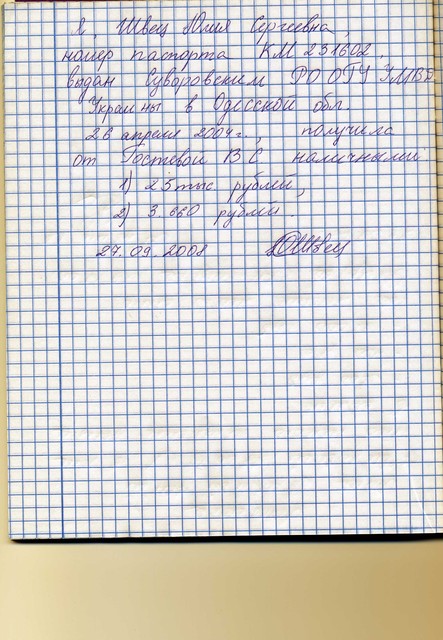 Я, Швец Юлия Сергеевна,
номер паспорта КМ 231602,
выдан Суворовским РО ОГУ УМВД
Украины в Одесской обл.
26 апреля 2004г., получила
от Гостевой В С наличными:
1) 25 тыс рублей,
2) 3 660 рублей
27.09.2008 ЮШвец